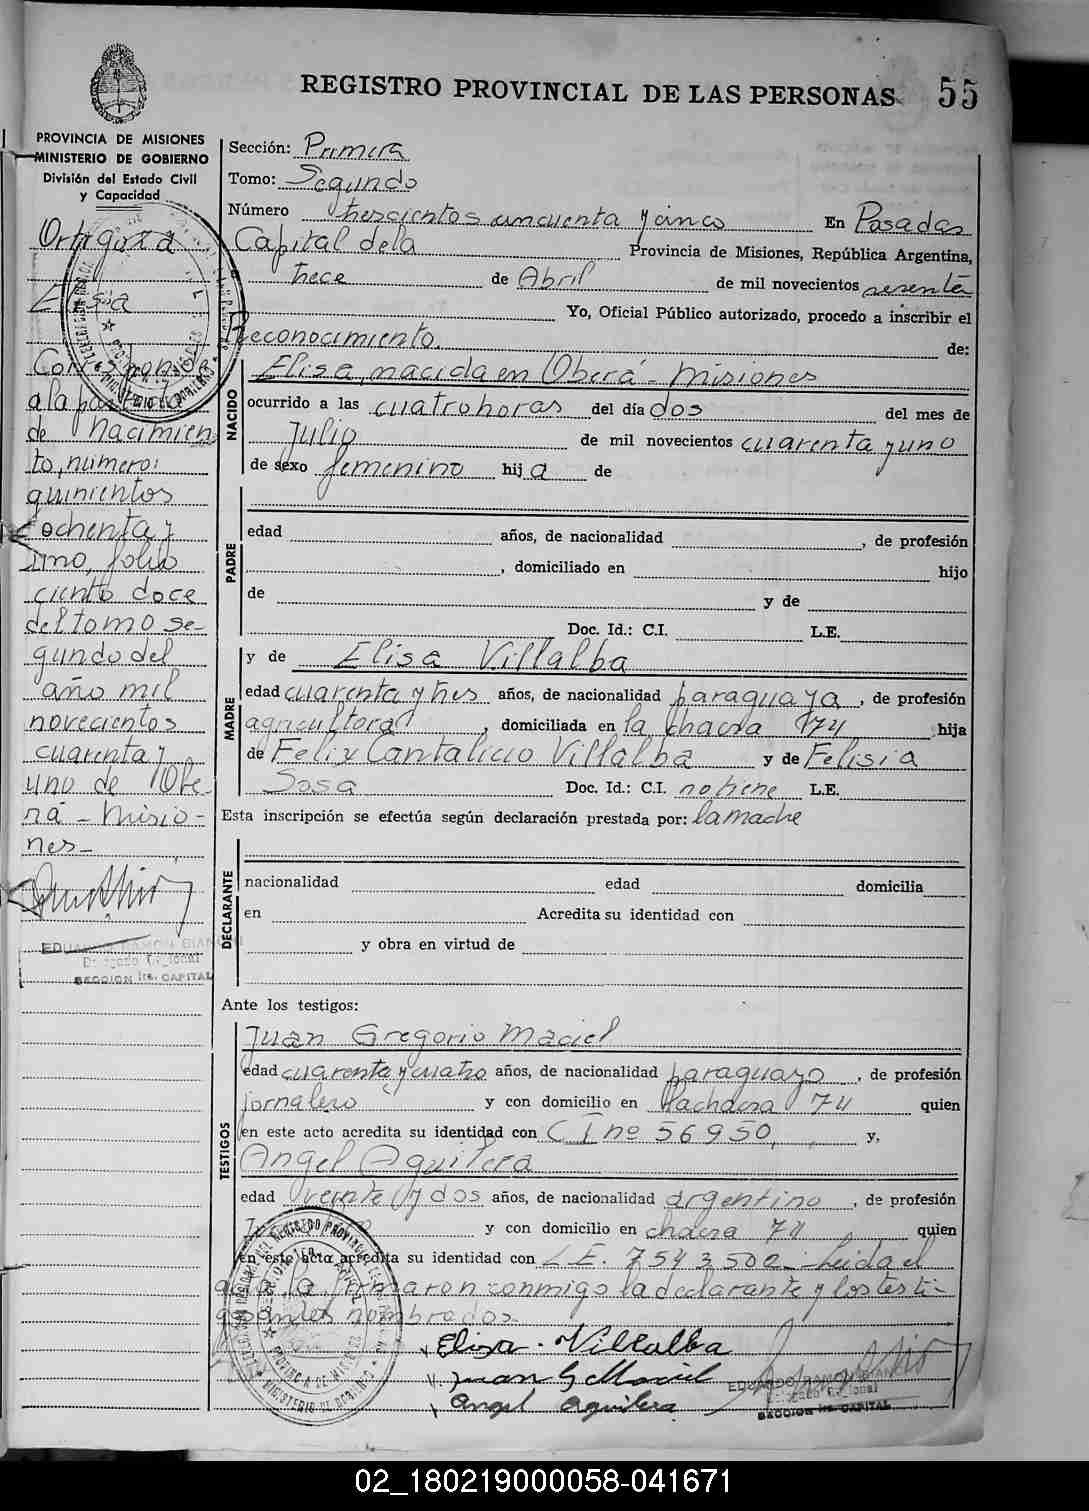 REGISTRO PROVINCIAL DE LAS PERSONAS 55
PROVINCIA DE MISIONES
MINISTERIO DE GOBIERNO
División del Estado Civil
y Capacidad
Ortigoza
Elisa
Corresponde
a la
de Nacimien
to, número:
quinientos
ochenta y
uno, folio
ciento doce
del tomo se-
gundo del
año mil
novecientos
cuarenta y
uno de Obe-
rá - Misio-
nes-
EDUARDO RAMON BIANCHI
Delegado Regional
SECCION 1ra. CAPITAL
Sección: Primera
Tomo: Segundo
Número trescientos cincuenta y cinco En Posadas
Capital dela Provincia de Misiones, República Argentina,
trece de Abril de mil novecientos sesenta
Yo, Oficial Público autorizado, procedo a inscribir el
Reconocimiento. de:
NACIDO
Elisa, nacida en Oberá - Misiones
ocurrido a las cuatro horas del día dos del mes de
Julio de mil novecientos cuarenta y uno
de sexo femenino hija de
PADRE
edad años, de nacionalidad , de profesión
, domiciliado en hijo
de y de
Doc. Id.: C.I. L.E.
MADRE
y de Elisa Villalba
edad cuarenta y tres años, de nacionalidad paraguaya, de profesión
agricultora, domiciliada en la chacra 174 hija
de Felix Cantalicio Villalba y de Felisia
Sosa Doc. Id.: C.I. no tiene L.E.
Esta inscripción se efectúa según declaración prestada por: la madre
DECLARANTE
nacionalidad edad domicilia
en Acredita su identidad con
y obra en virtud de
Ante los testigos:
TESTIGOS
Juan Gregorio Maciel
edad cuarenta y cuatro años, de nacionalidad paraguayo, de profesión
jornalero y con domicilio en la chacra 74 quien
en este acto acredita su identidad con C I nº 56950, y,
Angel Aguilera
edad veinte y dos años, de nacionalidad argentino, de profesión
y con domicilio en chacra 74 quien
en este acto acredita su identidad con L.E. 7543502 - Leida el
acta la firmaron conmigo la declarante y los testi-
gos nombrados.
Elisa. Villalba
Juan G Maciel
Angel Aguilera
EDUARDO RAMON BIANCHI
Delegado Regional
SECCION 1ra. CAPITAL
02_180219000058-041671